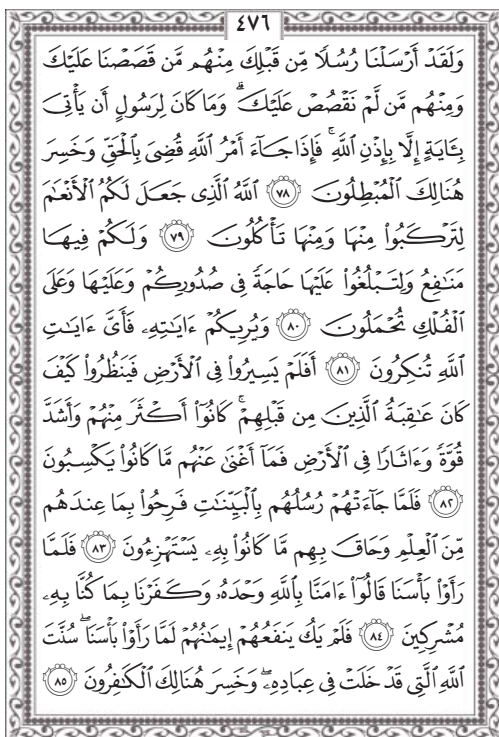 ٤٧٦
وَلَقَدْ أَرْسَلْنَا رُسُلًا مِّن قَبْلِكَ مِنْهُم مَّن قَصَصْنَا عَلَيْكَ
وَمِنْهُم مَّن لَّمْ نَقْصُصْ عَلَيْكَۗ وَمَا كَانَ لِرَسُولٍ أَن يَأْتِىَ
بِـَٔايَةٍ إِلَّا بِإِذْنِ ٱللَّهِۚ فَإِذَا جَآءَ أَمْرُ ٱللَّهِ قُضِىَ بِٱلْحَقِّ وَخَسِرَ
هُنَالِكَ ٱلْمُبْطِلُونَ ٧٨ ٱللَّهُ ٱلَّذِى جَعَلَ لَكُمُ ٱلْأَنْعَٰمَ
لِتَرْكَبُوا۟ مِنْهَا وَمِنْهَا تَأْكُلُونَ ٧٩ وَلَكُمْ فِيهَا
مَنَٰفِعُ وَلِتَبْلُغُوا۟ عَلَيْهَا حَاجَةً فِى صُدُورِكُمْ وَعَلَيْهَا وَعَلَى
ٱلْفُلْكِ تُحْمَلُونَ ٨٠ وَيُرِيكُمْ ءَايَٰتِهِۦ فَأَىَّ ءَايَٰتِ
ٱللَّهِ تُنكِرُونَ ٨١ أَفَلَمْ يَسِيرُوا۟ فِى ٱلْأَرْضِ فَيَنظُرُوا۟ كَيْفَ
كَانَ عَٰقِبَةُ ٱلَّذِينَ مِن قَبْلِهِمْۚ كَانُوٓا۟ أَكْثَرَ مِنْهُمْ وَأَشَدَّ
قُوَّةً وَءَاثَارًا فِى ٱلْأَرْضِ فَمَآ أَغْنَىٰ عَنْهُم مَّا كَانُوا۟ يَكْسِبُونَ
٨٢ فَلَمَّا جَآءَتْهُمْ رُسُلُهُم بِٱلْبَيِّنَٰتِ فَرِحُوا۟ بِمَا عِندَهُم
مِّنَ ٱلْعِلْمِ وَحَاقَ بِهِم مَّا كَانُوا۟ بِهِۦ يَسْتَهْزِءُونَ ٨٣ فَلَمَّا
رَأَوْا۟ بَأْسَنَا قَالُوٓا۟ ءَامَنَّا بِٱللَّهِ وَحْدَهُۥ وَكَفَرْنَا بِمَا كُنَّا بِهِۦ
مُشْرِكِينَ ٨٤ فَلَمْ يَكُ يَنفَعُهُمْ إِيمَٰنُهُمْ لَمَّا رَأَوْا۟ بَأْسَنَاۖ سُنَّتَ
ٱللَّهِ ٱلَّتِى قَدْ خَلَتْ فِى عِبَادِهِۦۖ وَخَسِرَ هُنَالِكَ ٱلْكَٰفِرُونَ ٨٥